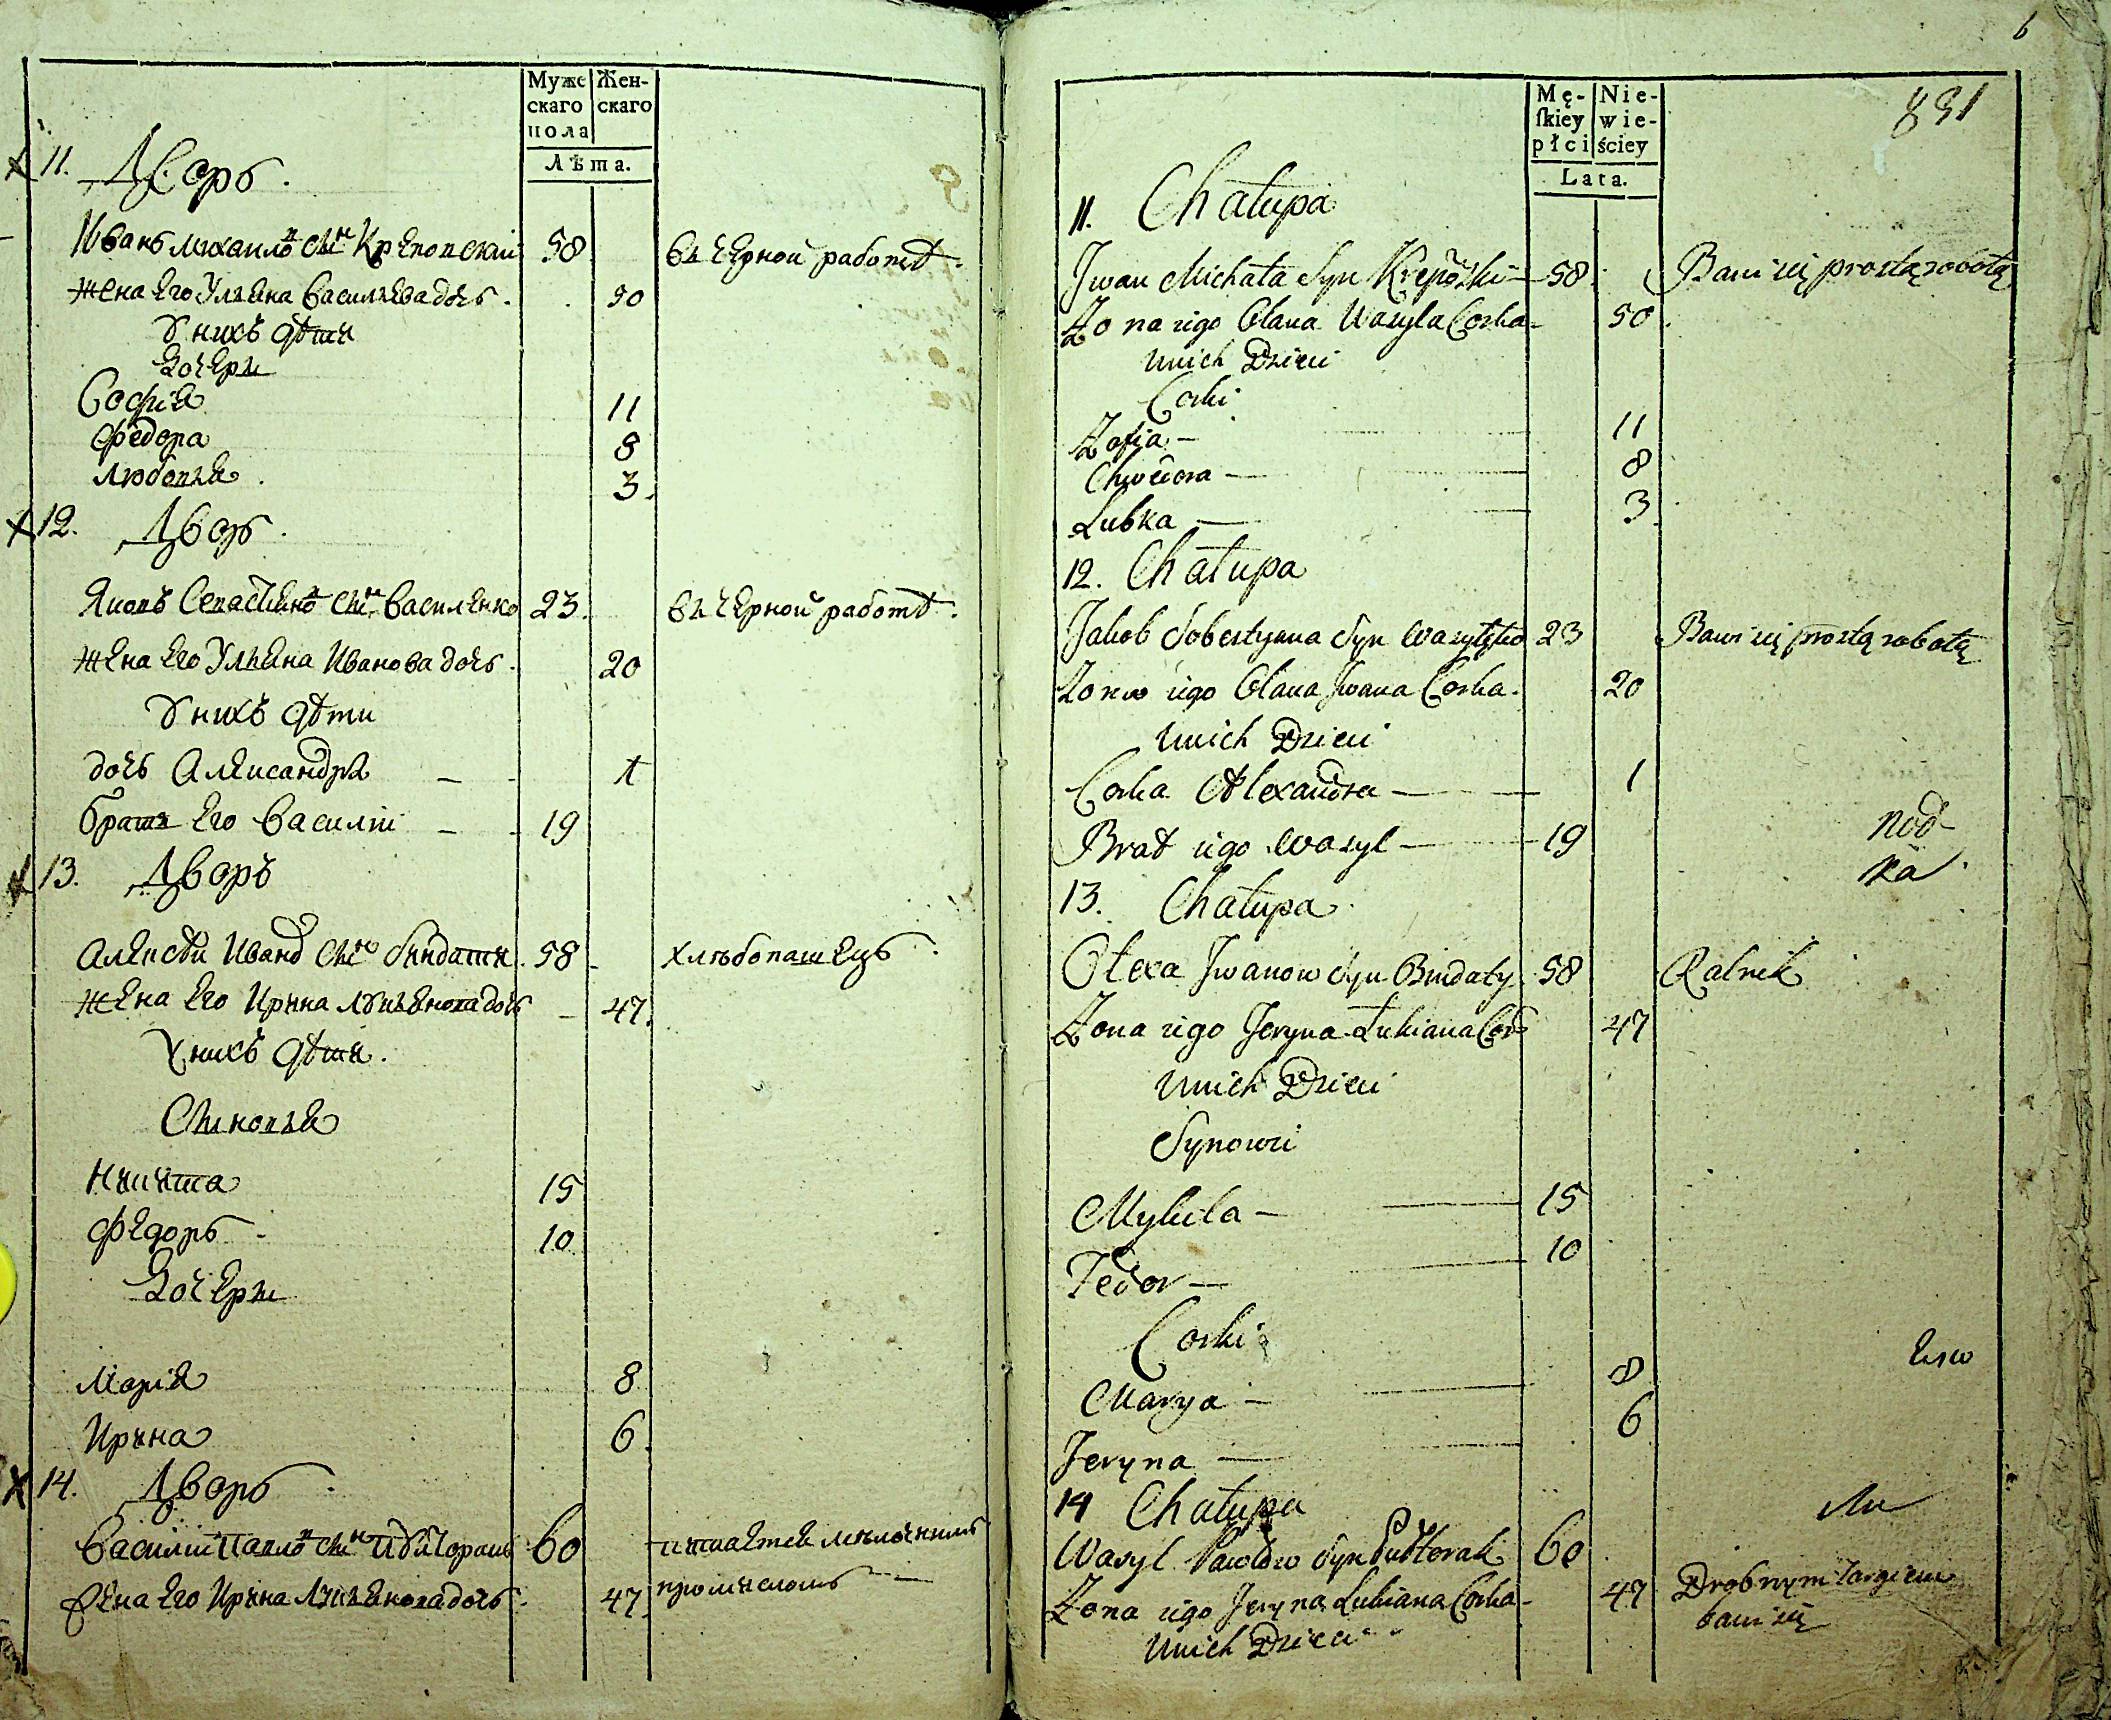 Муже
скаго
пола
Жен-
скаго
Лѣта.
11. Дворъ.
Иванъ Михайловъ сынъ Креповский 58 въ черной работѣ.
жена Его Ульяна Васильева дочь. 50
У нихъ дѣти
Дочери
София 11
Федора 8
Любовья 3.
12. Дворъ.
Яковъ Севастиянов сынъ Василенко 23. въ черной работѣ.
жена Его Ульяна Иванова дочь. 20
У нихъ дѣти
дочь Александра 1
братъ Его Василий 19
13. Дворъ
Алексѣй Иванов сынъ Биндати 58 хлѣбопашецъ.
жена Его Ирина Лукьянова дочь 47.
У нихъ дѣти.
Сыновья
Никита 15
Федоръ 10
Дочери
Мария 8
Ирина 6.
14. Дворъ.
Василий Павлов сынъ 60 питается мѣлочнымъ
жена Его Ирина Лукьянова дочь. 47. промысломъ
6
831
Mę-
ſkiey
płci
Nie-
wie-
ściey
Lata.
11. Chałupa
Jwan Michała Syn Kreposki 58. Bawi się prostą robotą
Zona iego Olana Wasyla Corka 50.
Unich Dzieci
Corki
Zofia 11
Chwedora 8
Lubka 3
12. Chałupa
Jakob Sobestyana Syn Wasylęko 23 Bawi się prostą robotą
Zona iego Olana Jwana Corka. 20
Unich Dzieci
Corka Alexandra 1
Brat iego Wasyl 19
13. Chałupa
Olexa Jwanow Syn Bindaty 58 Rolnik
Zona iego Jeryna Lukiana Cor 47
Unich Dzieci
Synowie
Mykita 15
Fedor 10
Corki
Marya 8
Jeryna 6
14 Chałupa
Wasyl Pawlow Syn Puttorak 60
Zona iego Jeryna Lukiana Corka 47 Drobnym targiem
bawi się
Unich Dzieci